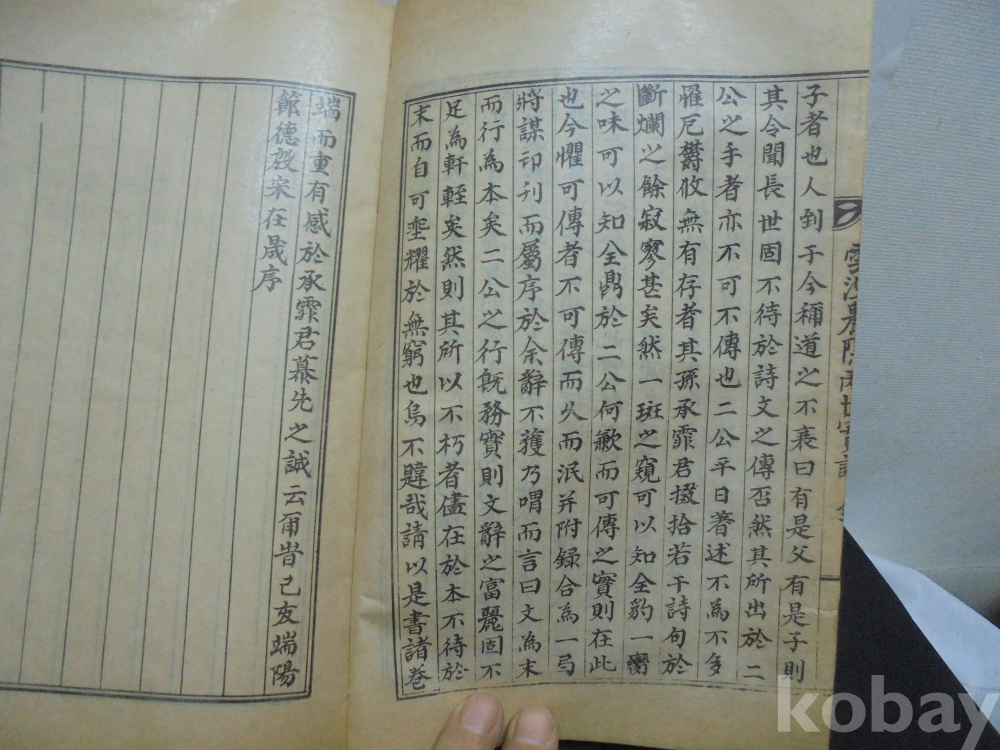 子者也人到于今稱道之不衰曰有是父有是子則
其令聞長世固不待於詩文之傳否然其所出於二
公之手者亦不可不傳也二公平日著述不爲不多
罹厄欝攸無有存者其孫承霏君掇拾若干詩句於
斷爛之餘寂寥甚矣然一斑之窺可以知全豹一臠
之味可以知全鼎於二公何歉而可傳之實則在此
也今懼可傳者不可傳而久而泯并附録合爲一局
將謀印刊而屬序於余辭不獲乃喟而言曰文為末
而行為本矣二公之行旣務實則文辭之富麗固不
足為軒輊矣然則其所以不朽者儘在於本不待於
末而自可埀耀於無窮也烏不韙哉請以是書諸卷
端而重有感於承霏君慕先之誠云爾旹己亥端陽
節德殷宋在晟序
雲沙農隱兩世實記 全
kobay